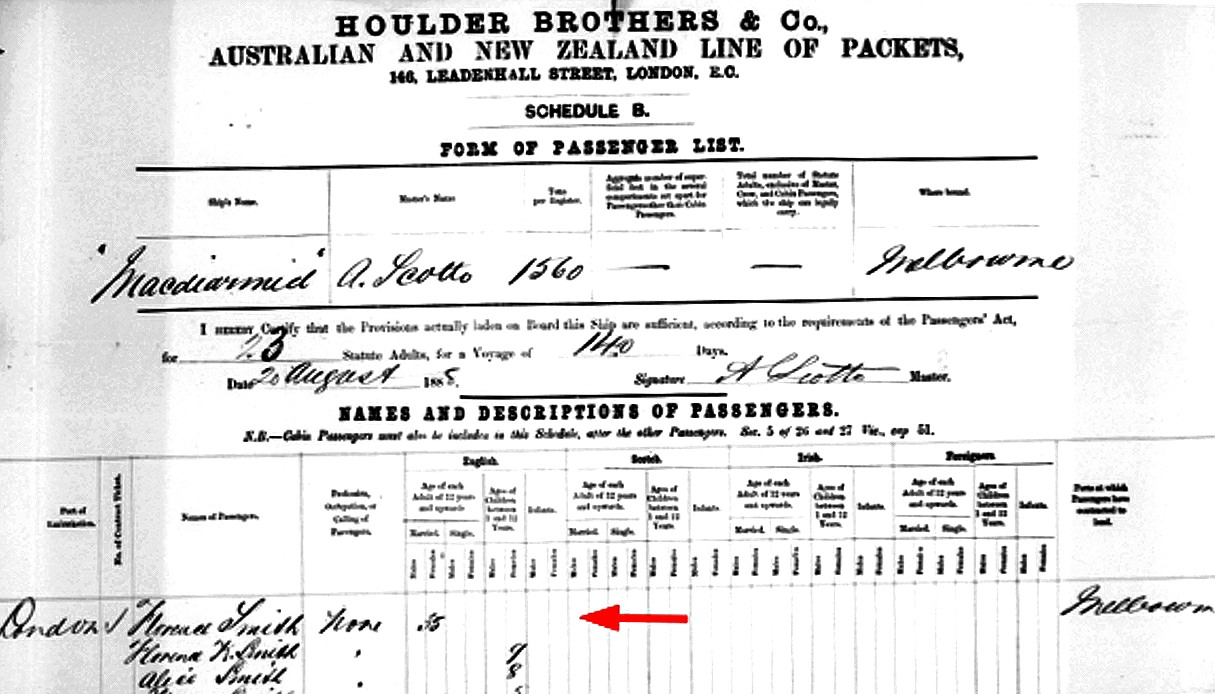 HOULDER BROTHERS & Co.,
AUSTRALIAN AND NEW ZEALAND LINE OF PACKETS,
146, LEADENHALL STREET, LONDON, E.C.
SCHEDULE B.
FORM OF PASSENGER LIST.
Ship's Name. Master's Name Tons per Register. Aggregate number of superficial feet in the several compartments set apart for Passengers other than Cabin Passengers. Total number of Statute Adults, exclusive of Master, Crew, and Cabin Passengers, which the ship can legally carry. Where bound.
"Macdiarmid" A. Scotto 1560 — — Melbourne
I HEREBY Certify that the Provisions actually laden on Board this Ship are sufficient, according to the requirements of the Passengers' Act,
for 23 Statute Adults, for a Voyage of 140 Days.
Date 20 August 1885. Signature A Scotto Master.
NAMES AND DESCRIPTIONS OF PASSENGERS.
N.B.—Cabin Passengers must also be included in this Schedule, after the other Passengers. Sec. 5 of 26 and 27 Vic., cap 51.
English. Scotch. Irish. Foreigners.
Port of Embarkation. No. of Contract Ticket. Names of Passengers. Profession, Occupation, or Calling of Passengers. Ports at which Passengers have contracted to land.
Age of each Adult of 12 years and upwards. Ages of Children between 1 and 12 Years. Infants. Age of each Adult of 12 years and upwards. Ages of Children between 1 and 12 Years. Infants. Age of each Adult of 12 years and upwards. Ages of Children between 1 and 12 Years. Infants. Age of each Adult of 12 years and upwards. Ages of Children between 1 and 12 Years. Infants.
Married. Single. Married. Single. Married. Single. Married. Single.
Males Females Males Females Males Females Males Females Males Females Males Females Males Females Males Females Males Females Males Females Males Females Males Females Males Females Males Females Males Females Males Females
London 1 Florence Smith None 35 Melbourn
Florence K. Smith " 9
Alice Smith " 8